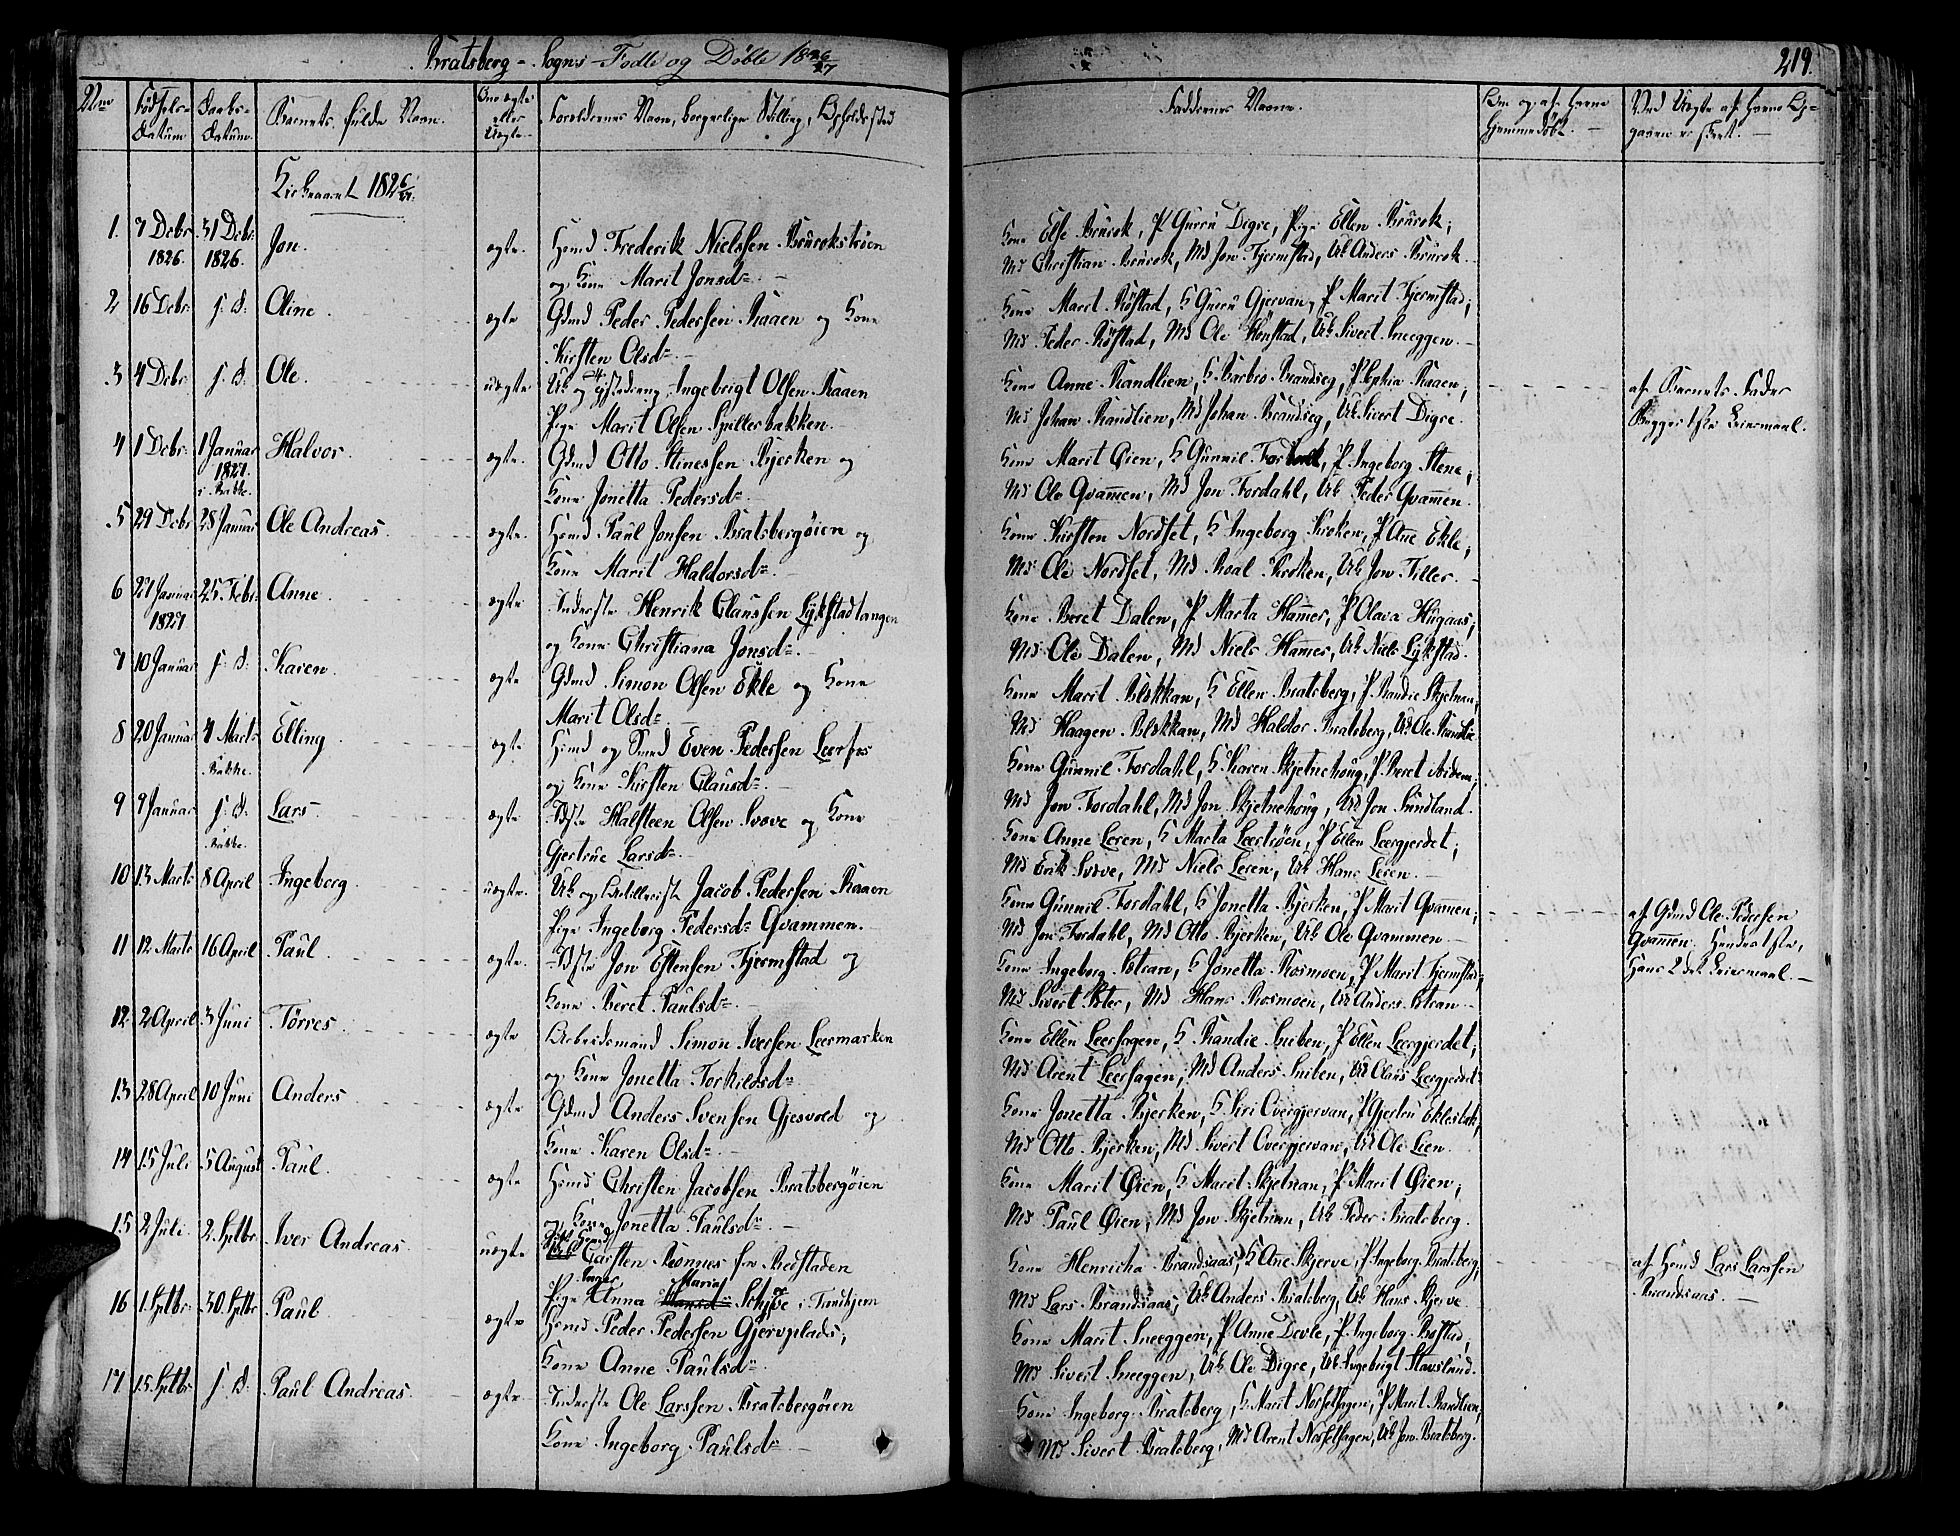 Bratsberg Sogns Fødte og Døbte 1826/27
219.
Nro
Fødsels-Datum
Daabs-Datum.
Barnets fulde Navn.
Om ægte eller Uægte.
Forældrenes Navn, borgerlige Stilling, Opholdssted
Faddernes Navne.
Om og af hvem Hjemmedøbt.
Ved Uægte af hvem Opgaven er skeet.
Kirkeaaret 1826/27.
1. 7 Debr 1826. 31 Debr: 1826. Jon. ægte. Hmd Frederik Nielssen Brurokstrøen
og Kone Marit Jonsd:
Kone Else Brurok, P. Gurru Digre, Pige Ellen Brurok;
Md Christian Brurok, Md Jon Fjermstad, Uk Anders Brurok.
2 16 Debr s: d: Oline. ægte Gdmd Peder Pedersen Raaen og Kone
Kirsten Olsd:
Kone Marit Røstad, K Guru Gjervan, P Marit Fjermstad;
Md Peder Røstad, Md Ole Hønstad, Uk Sivert Sneeggen.
3 4 Debr s: d: Ole. uægte Uk og Gifte dreng Ingebrigt Olsen Raaen
Pige Marit Olsen Spillerbakken.
Kone Anne Randlien, K Barbro Brandseg, P Sophia Raaen,
Md Johan Randlien, Md Johan Brandseg, Uk Sivert Digre.
af Barnets Fader
Begges 1ste Leiermaal.
4 1 Debr. 1 Januar 1827. i Bakke. Halvor. ægte. Gdmd Otto Stinessen Bjerken og
Kone Jonetta Pedersd:
Kone Marit Øien, K Gunnil Fordahl, P Ingeborg Stene;
Md Ole Qvammen, Md Jon Fordahl, Uk Peder Qvammen.
5 29 Debr 28 Januar Ole Andreas. ægte. Hmd Paul Jonsen Bratsbergøien og
Kone Marit Haldorsd:
Kone Kirsten Nordset, K Ingeborg Kroken, P Ane Ekle;
Md Ole Nordset, Md Roal Kroken, Uk Jon Tiller.
6 27 Januar 1827 25 Febr: Anne ægte Inderste Henrik Claussen Lykstadtangen
og Kone Christiana Jonsd:
Kone Beret Dalen, P Marta Hammer, P Olava Hugaas;
Md Ole Dalen, Md Niels Hammer, Uk Niels Lykstad.
7 10 Januar s: d: Karen. ægte Gdmd Simon Olsen Ekle og Kone
Marit Olsd:
Kone Marit Blekkan, K Ellen Bratsberg, P Randie Skjetnan,
Md Haagen Blekkan, Md Haldor Bratsberg, Uk Ole Randlie
8 20 Januar 4 Marts Bakke. Elling ægte Hmd og Smed Even Pedersen Leerfos
og Kone Kirsten Clausd:
Kone Gunnil Fordahl, K Karen Skjetnehaug, P Beret Aidem,
Md Jon Fordahl, Md Jon Skjetnehoug, Uk Jon Sundland.
9 9 Januar s: d: Bakke. Lars. ægte Idste Halsteen Olsen Svøve og Kone
Gjertrue Larsd:
Kone Anne Leren, K Marta Leertrøen, P Ellen Leergjerdet;
Md Erik Svøve, Md Niels Leren, Uk Hans Leren.
10 13 Marts 8 April Ingeborg uægte. Uk og Artillerist Jacob Pedersen Raaen
Pige Ingeborg Pedersd: Qvammen.
Kone Gunnil Fordahl, K Jonetta Bjerken, P Marit Qvammen;
Md Jon Fordahl, Md Otto Bjerken, Uk Ole Qvammen
af Gdmd Ole Pedersen
Qvammen. Hendes 1ste,
Hans 2det Leiermaal.
11 12 Marts 16 April Paul. ægte. Idste Jon Estensen Fjermstad og
Kone Beret Paulsd:
Kone Ingeborg Stran, K Jonetta Rosmoen, P Marit Fjermstad,
Md Sivert Moter, Md Hans Rosmoen, Uk Anders Stran
12. 2 April 3 Juni Tørres ægte Arbeidsmand Simon Iversen Leermarken
og Kone Jonetta Torkildsd:
Kone Ellen Leerhagen, K Randie Sneben, P Ellen Leergjerdet;
Md Arent Leerhagen, Md Anders Sneben, Uk Claus Leergjerdet
13 28 April 10 Juni Anders ægte Gdmd Anders Svensen Gjesvold og
Kone Karen Olsd:
Kone Jonetta Bjerken, K Siri Overgjervan, P Gjertru Eklesbak,
Md Otto Bjerken, Md Sivert Overgjervan, Uk Ole Leen.
14 15 Juli 5 August Paul. ægte Hmd Christen Jacobsen Bratsbergøien
og Kone Jonetta Paulsd:
Kone Marit Øien, K Marit Skjetnan, P Marit Øien;
Md Paul Øien, Md Jon Skjetnan, Uk Peder Bratsberg.
15 2 Juli 2. Sptbr Iver Andreas uægte Carsten Rønnes fra Redstaden
Pige Anna Maria Schjøe i Trondhjem
Kone Henricha Brandsaas, K Ane Skjerve, P Ingeborg Bratsberg,
Md Lars Brandsaas, Uk Anders Bratsberg, Uk Hans Skjerve
af Hmd Lars Larssen
Brandsaas.
16 1 Sptbr 30 Sptbr Paul ægte Hmd Peder Pedersen Gjervplads,
Kone Anne Paulsd:
Kone Marit Sneeggen, P Anne Devle, P Ingeborg Røstad,
Md Sivert Sneeggen, Uk Ole Digre, Uk Ingebrigt Stavslund.
17 15 Sptbr s: d: Paul Andreas. ægte Inderste Ole Larssen Bratsbergøien
Kone Ingeborg Paulsd:
Kone Ingeborg Bratsberg, K Marit Norsethagen, P Marit Randlien,
Md Sivert Bratsberg, Md Arent Norsethagen, Uk Jon Bratsberg.